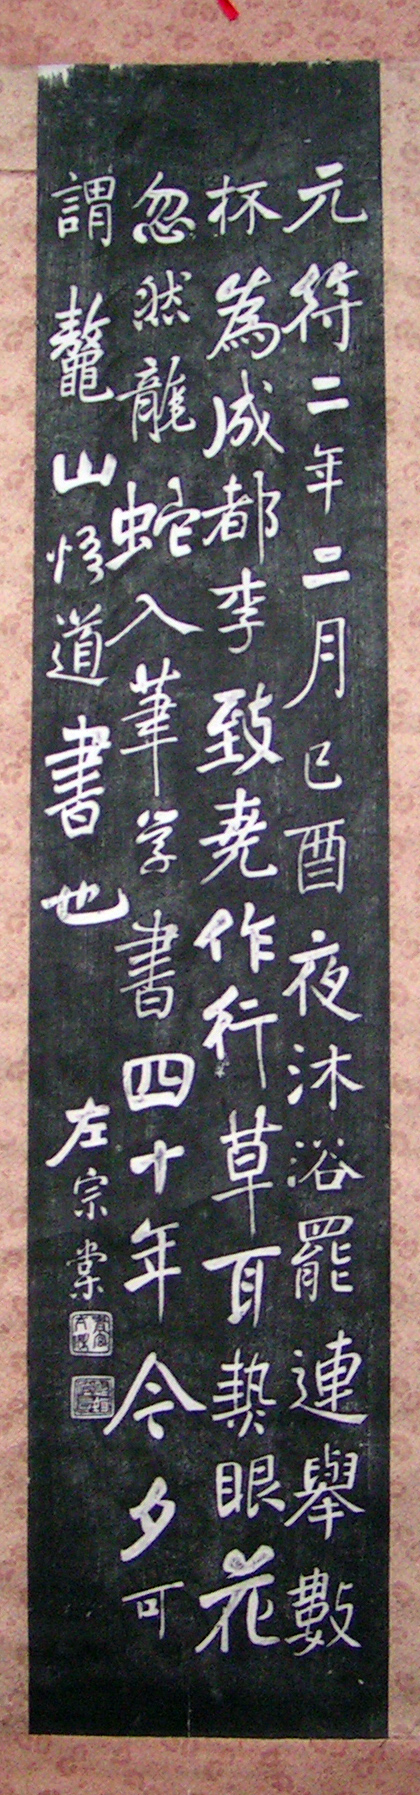 元符二年二月己酉夜沐浴罷連舉數
杯為成都李致堯作行草耳熱眼花
忽然龍蛇入筆学書四十年今夕可
謂鼇山悟道書也
左宗棠